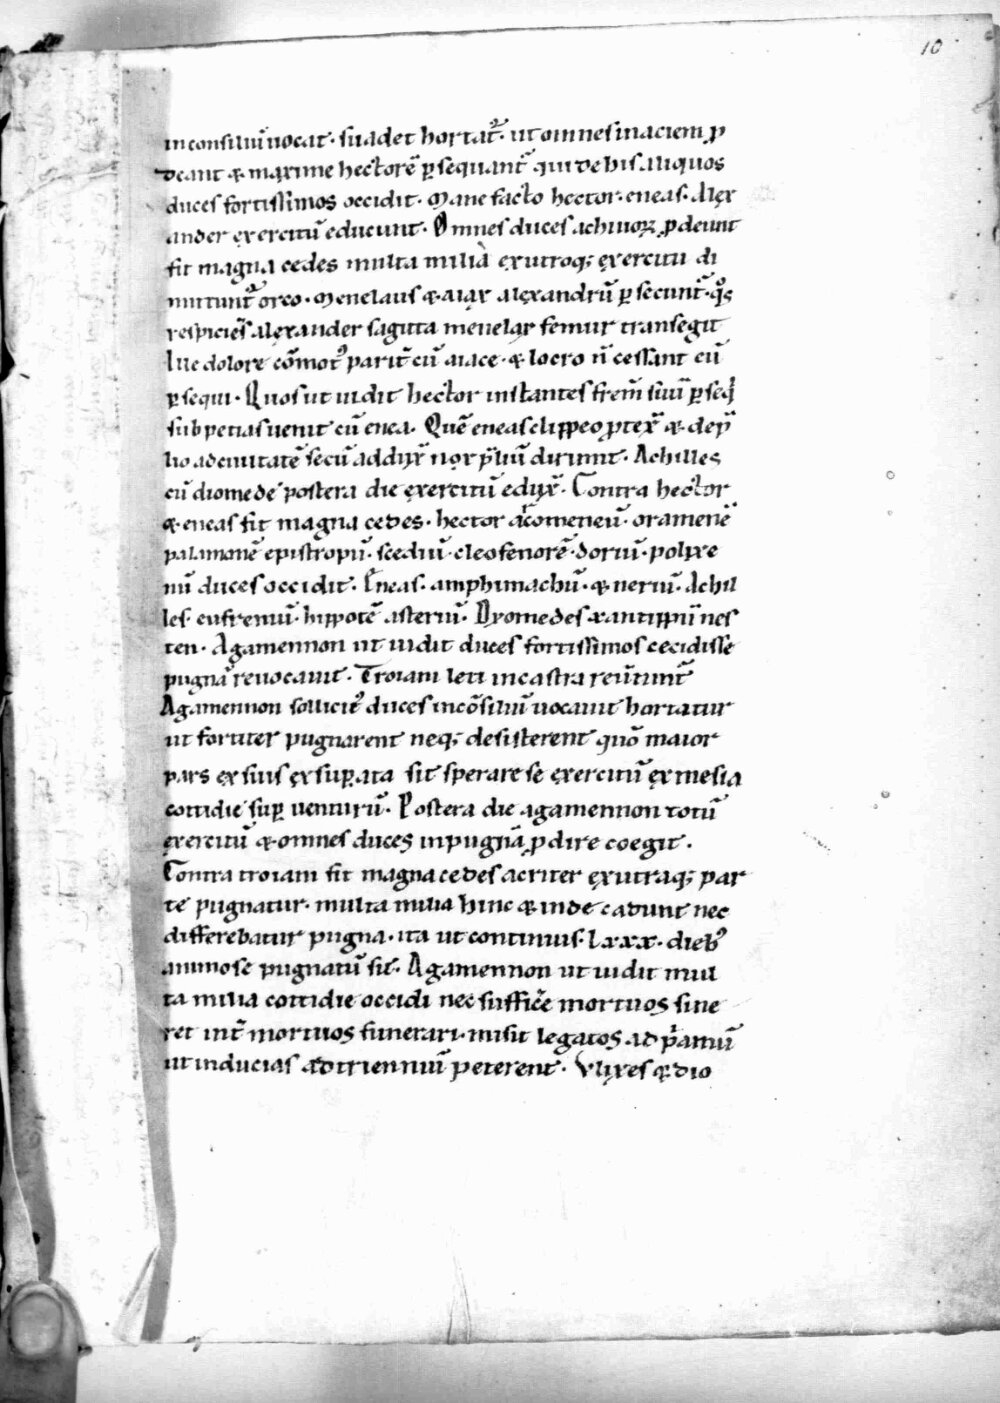 10
in consiliũ uocat · suadet hortat᷑ · ut omnes in aciem ꝓ
deant & maxime hectorẽ ꝑsequant᷑ qui de his aliquos
duces fortissimos occidit · Mane facto hector · eneas · Alex
ander exercitũ educunt · Omnes duces achiuoꝝ ꝓdeunt
fit magna cedes multa milia ex utroq; exercitu di
mittunt᷑ orco · Menelaus & aiax alexandrũ ꝑsecunt᷑ · quos
respiciẽs alexander sagitta menelai femur transegit
Ille dolore cõmotꝰ parit᷑ cũ aiace · & locro ñ cessant eũ
ꝑsequi · Quos ut uidit hector instantes frem̃ suũ ꝑseq
suppetias uenit cũ enea · Quẽ eneas clippeo ꝓtex̃ & de p̃
lio ad ciuitatẽ secũ addux̃ nox p̃liũ dirimit · Achilles
cũ diomede postera die exercitũ edux̃ · Contra hector
& eneas fit magna cedes · hector
palamonẽ epistropũ · scediũ · elesenorẽ · doriũ · polixe
nũ duces occidit · Eneas · amphimachũ · & neriũ · Achil
les · eufremũ · hippotẽ asteriũ · Dyomedes xantippũ nes
ten · Agamennon ut uidit duces fortissimos cecidisse
pugnã reuocauit · Troiani leti in castra reũtunt᷑
Agamennon sollicitꝰ duces in cõsiliũ uocauit hortatur
ut fortiter pugnarent neq; desisterent quõ maior
pars ex suis exsuꝑata sit sperare se exercitũ ex mesia
cottidie suꝑ uenturũ · Postera die agamennon totũ
exercitũ & omnes duces in pugnã ꝓdire coegit ·
Contra troiam fit magna cedes acriter ex utraq; par
te pugnatur · multa milia hinc & inde cadunt nec
differebatur pugna · ita ut continuis · lxxx · diebꝰ
animose pugnatũ sit · Agamennon ut uidit mul
ta milia cottidie occidi nec sufficẽ mortuos sine
ret int᷑ mortuos funerari · misit legatos ad p̃amũ
ut inducias ad trienniũ peterent · Vlixes & dio